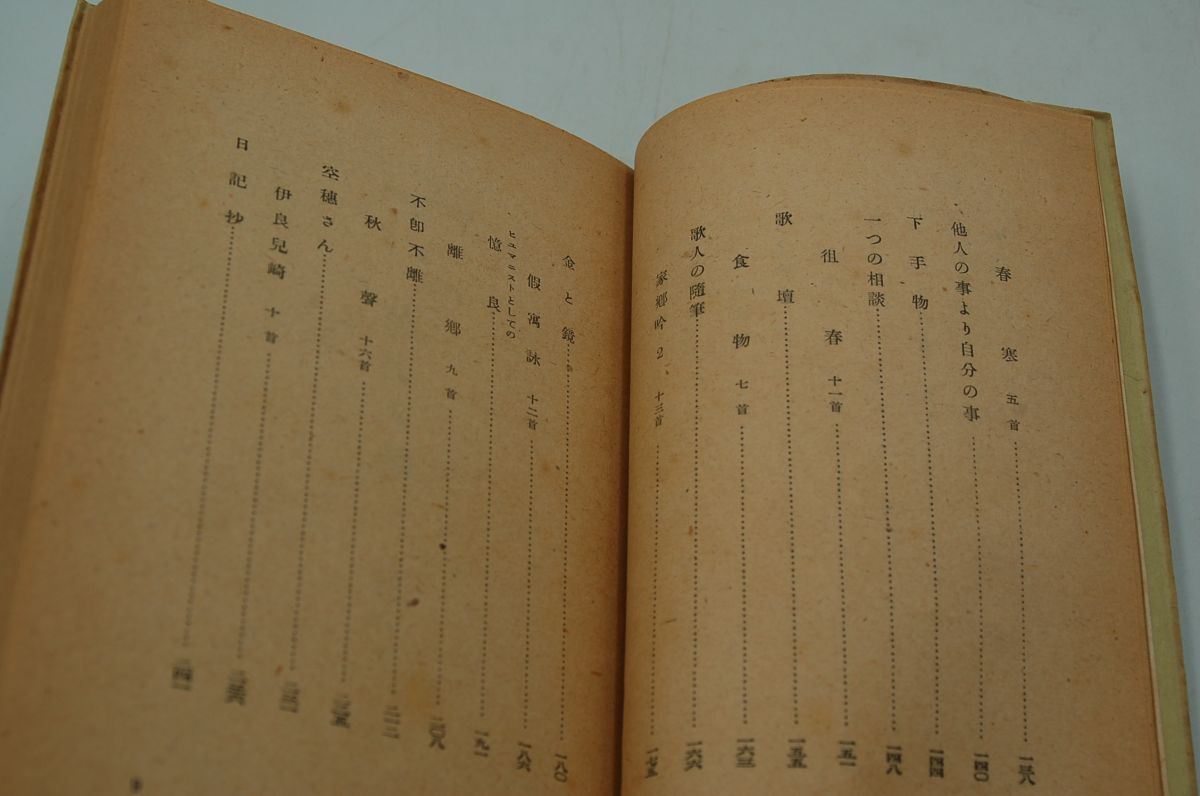 春寒 五首 一三八
他人の事より自分の事 一四〇
下手物 一四四
一つの相談 一四八
徂春 十一首 一五一
歌壇 一五五
食物 七首 一六三
歌人の随筆 一六六
家郷吟2 十三首 一七五
金と鏡 一八〇
假寓詠 十二首 一八六
ヒユマニストとしての
憶良 一九一
離郷 九首 二〇八
不卽不離
秋聲 十六首
空穗さん
伊良兒崎 十首
日記抄